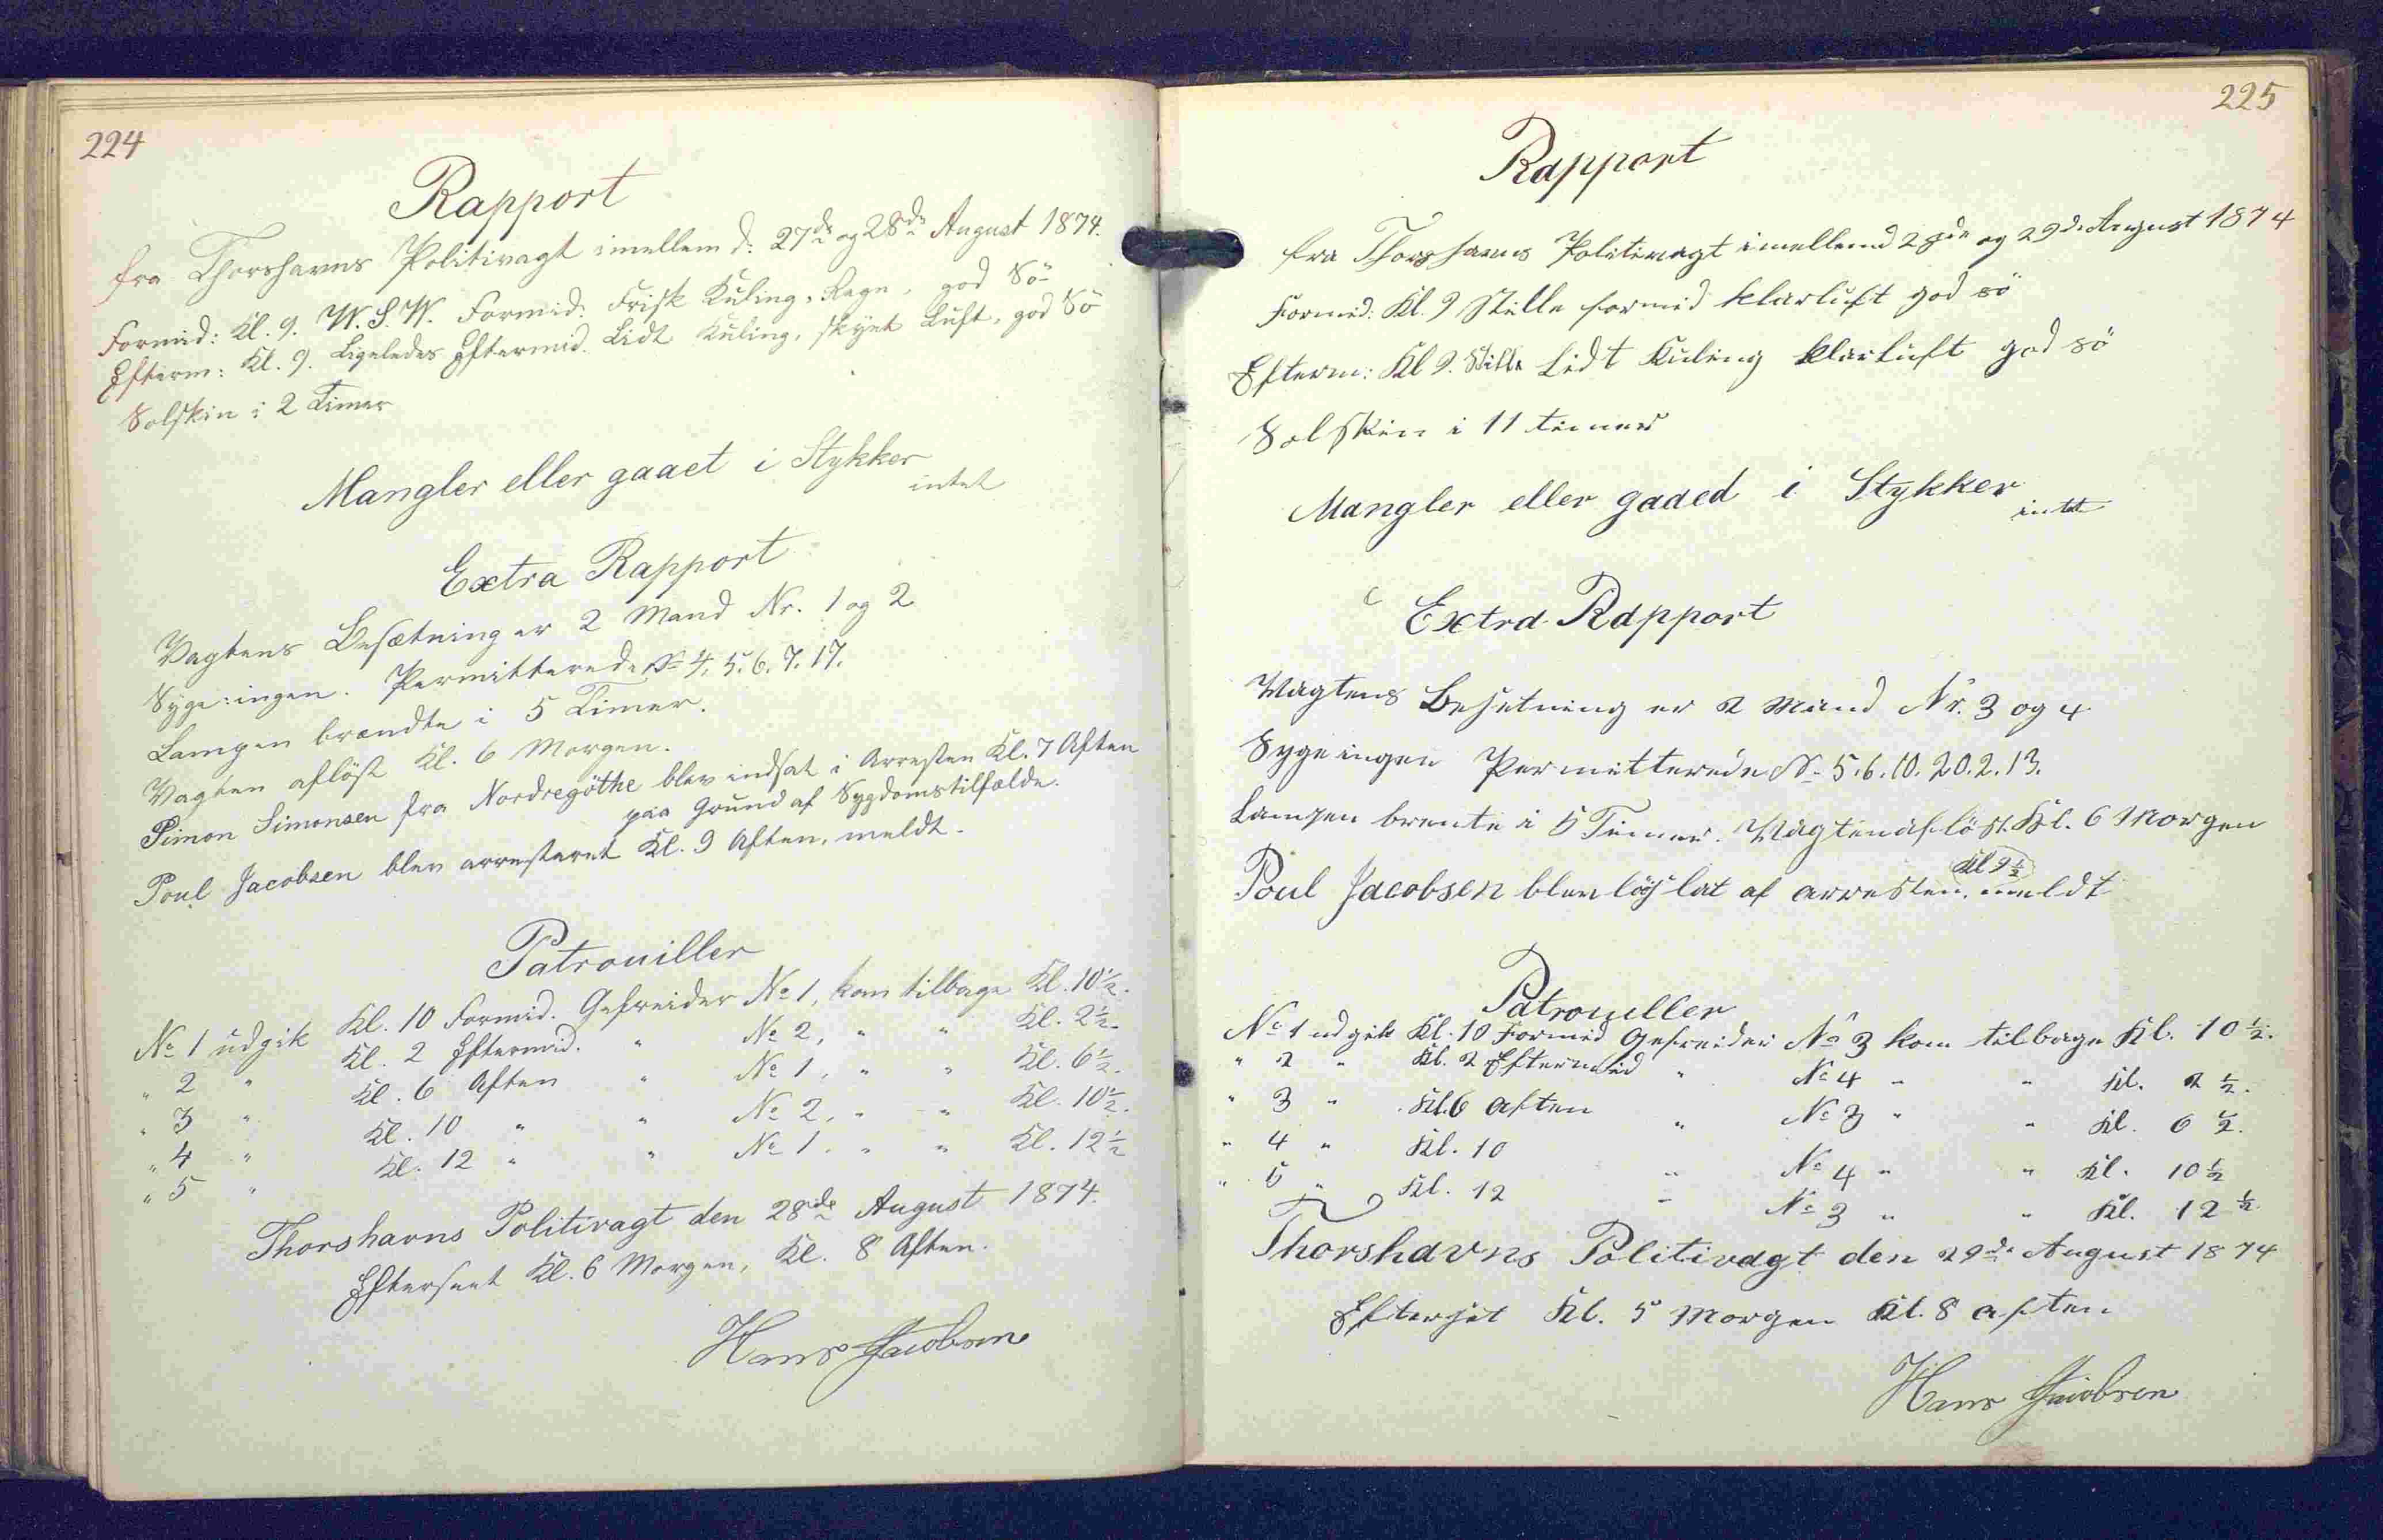 224
Rapport
fra Thorshavns Politivagt imellem d: 27de og 28de August 1874.
Formid: Kl. 9. W.S.W. Formid: Frisk Kuling, Regn, god Sö
Efterm: Kl. 9. Ligeledes Eftermid. Lidt Kuling, skyet Luft, god Sö
Solskin i 2 Timer
Mangler eller gaaet i Stykker
intet
Extra Rapport
Vagtens Besætning er 2 Mand Nr. 1 og 2
Syge: ingen. Permitterede No 4. 5. 6. 7. 17.
Lampen brændte i 5 Timer.
Vagten aflöst Kl. 6 Morgen.
Simon Simonsen fra Nordregöthe blev indsat i Arresten Kl. 7 Aften
paa Grund af Sygdomstilfælde.
Poul Jacobsen blev arresteret Kl. 9 Aften, meldt.
Patrouiller
No 1 udgik Kl. 10 Formid. Gefreider No 1, kom tilbage Kl. 10½.
" 2 " Kl. 2 Eftermid. " No 2, " " Kl. 2½.
" 3 " Kl. 6 Aften " No 1, " " Kl. 6½.
" 4 " Kl. 10 " " No 2, " " Kl. 10½.
" 5 " Kl. 12 " " No 1. " " Kl. 12½
Thorshavns Politivagt den 28de August 1874.
Efterseet Kl. 6 Morgen, Kl. 8 Aften.
Hans Jacobsen
225
Rapport
fra Thorshavns Politivagt imellemd 28de og 29de August 1874
Formid: Kl. 9 Stille formid klarluft god sö
Efterm: Kl 9. Stille Lidt Kuling klarluft god sö
Solskin i 11 timer
Mangler eller gaaed i Stykker
intet
Extra Rapport
Vagtens Besetning er 2 Mand Nr. 3 og 4
Syge ingen Permitterede No 5. 6. 10. 20. 2. 13.
Lampen brente i 5 Timer. Vagten aflöst. Kl. 6 Morgen
Kl 9½
Poul Jacobsen blev löslat af arresten. meldt
Patrouller
No 1 udgik Kl. 10 Formid Gefreider No 3 kom tilbage Kl. 10½.
" 2 " Kl. 2 Eftermid " No 4 " " Kl. 2½.
" 3 " Kl. 6 Aften " No 3 " " Kl. 6½.
" 4 " Kl. 10 " No 4 " " Kl. 10½
" 5 " Kl. 12 " No 3 " " Kl. 12½
Thorshavns Politivagt den 29de August 1874
Efterset Kl. 5 Morgen Kl. 8 aften
Hans Jacobsen